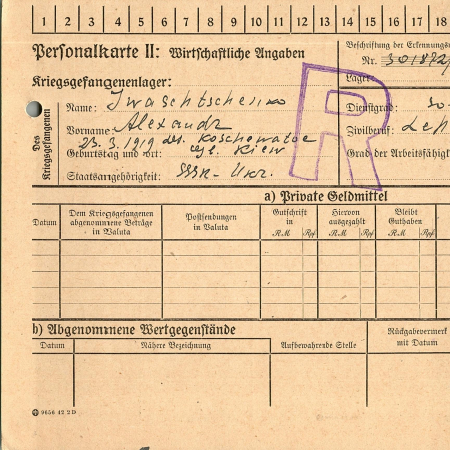 1 2 3 4 5 6 7 8 9 10 11 12 13 14 15 16 17 18
Personalkarte II: Wirtschaftliche Angaben
Beschriftung der Erkennungs
Nr. 301872/
Kriegsgefangenenlager:
Lager:
Des Kriegsgefangenen
Name: Iwaschtschenko
Dienstgrad:
Vorname: Alexandr
Zivilberuf:
23.3.1919 Koschewatoe
Geburtstag und =ort: Kiew
Grad der Arbeitsfähigk
Staatsangehörigkeit: SSR - Ukr.
R
a) Private Geldmittel
Datum
Dem Kriegsgefangenen abgenommene Beträge in Valuta
Postsendungen in Valuta
Gutschrift in
Hiervon ausgezahlt
Bleibt Guthaben
RM Rpf RM Rpf RM Rpf
b) Abgenommene Wertgegenstände
Datum
Nähere Bezeichnung
Aufbewahrende Stelle
Rückgabevermerk mit Datum
9656 42 2 D